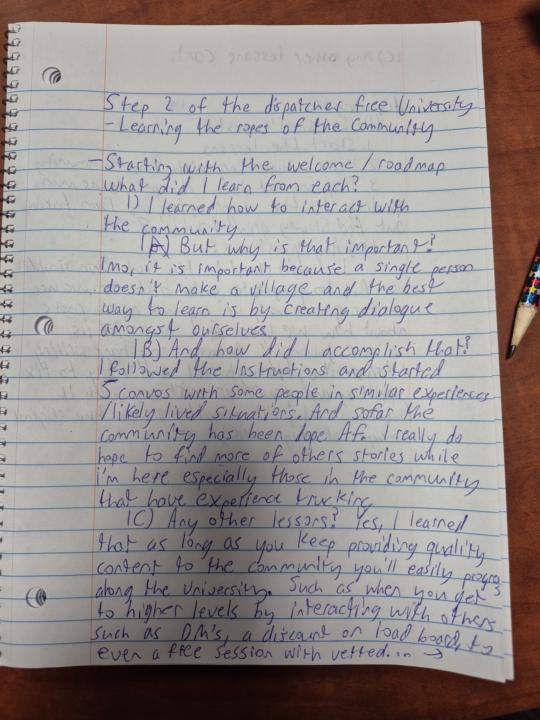 Step 2 of the dispatcher free University
- Learning the ropes of the Community
- Starting with the welcome / roadmap
what did I learn from each?
1) I learned how to interact with
the community
1A) But why is that important?
Imo, it is important because a single person
doesn't make a village and the best
way to learn is by creating dialogue
amongst ourselves
1B) And how did I accomplish that?
I followed the Instructions and started
5 convos with some people in similar experiences
/likely lived situations. And sofar the
community has been dope Af. I really do
hope to find more of others stories while
i'm here especially those in the community
that have experience trucking
1C) Any other lessons? Yes, I learned
that as long as you keep providing quality
content to the community you'll easily progress
along the University. Such as when you get
to higher levels by interacting with others
such as DM's, a discount on load board, to
even a free session with vetted... →